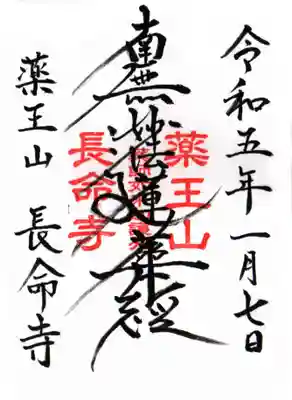 令和五年一月七日
南無妙法蓮華経
薬王山
長命寺
薬王山 長命寺